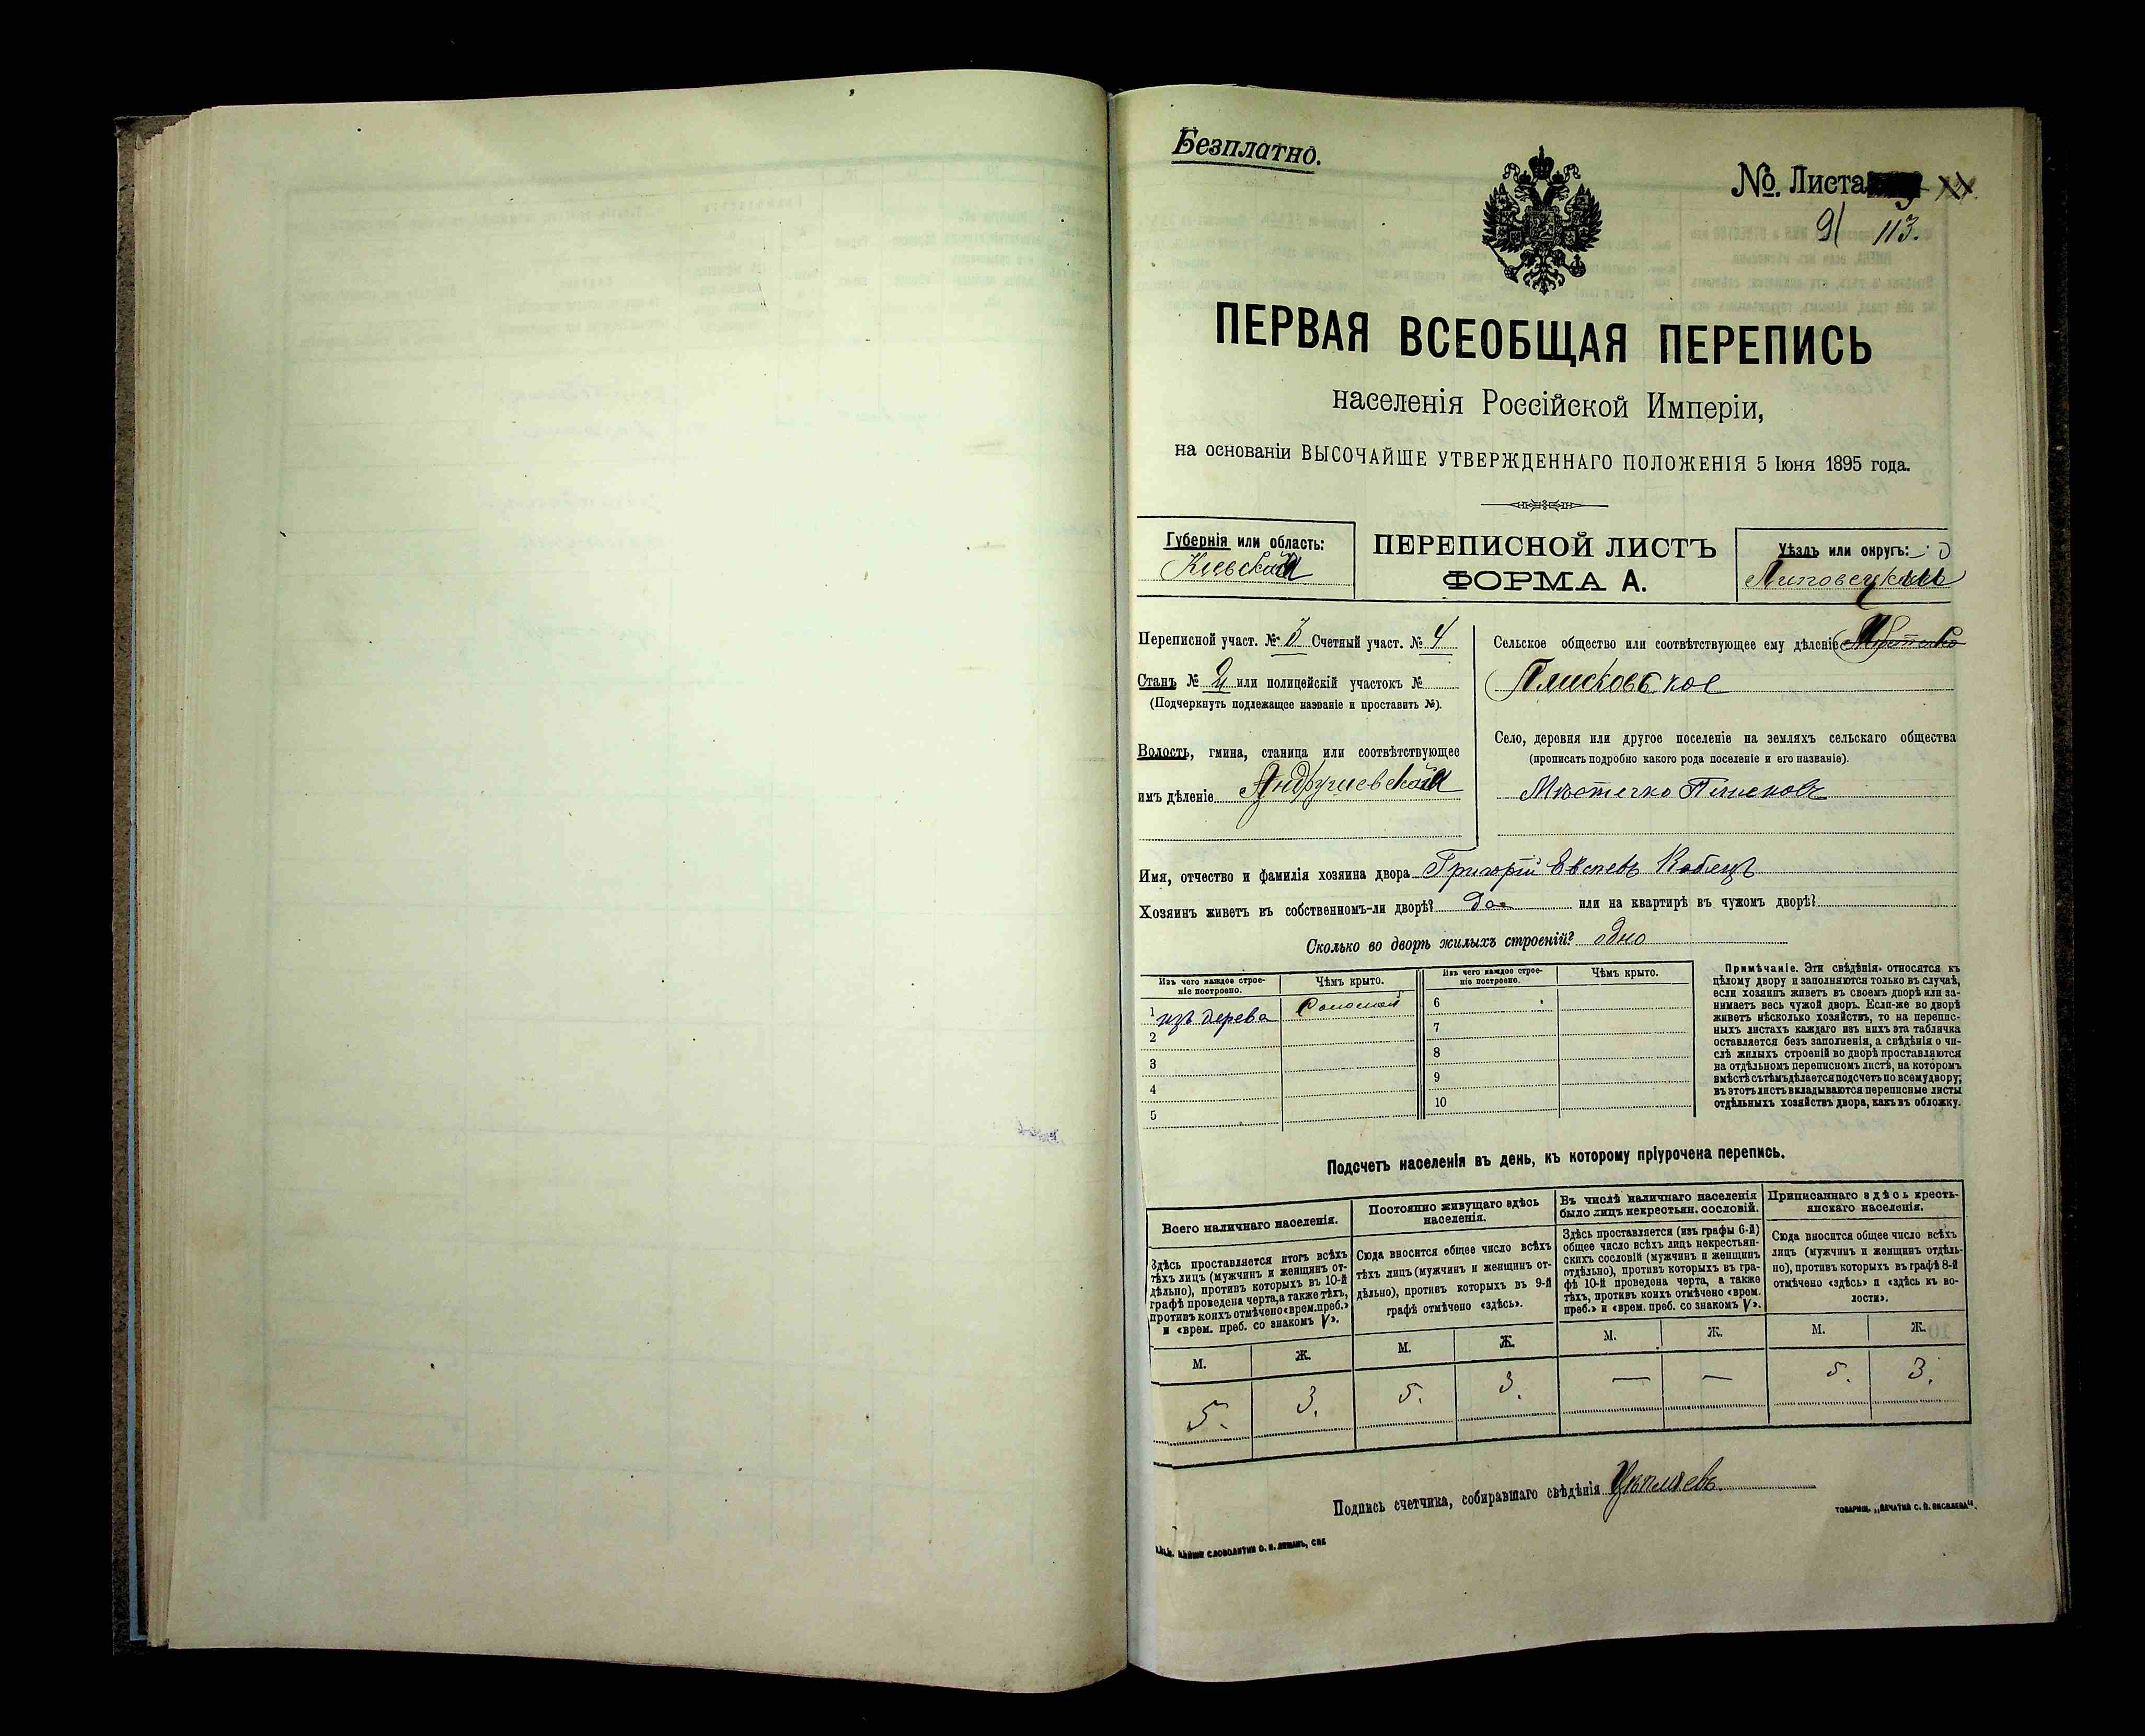 Безплатно.
№. Листа
91 113.
ПЕРВАЯ ВСЕОБЩАЯ ПЕРЕПИСЬ
населенія Россійской Имперіи,
на основаніи ВЫСОЧАЙШЕ УТВЕРЖДЕННАГО ПОЛОЖЕНІЯ 5 Іюня 1895 года.
Губернія или область:
Кіевская
ПЕРЕПИСНОЙ ЛИСТЪ
ФОРМА А.
Уѣздъ или округъ:
Липовецкій
Переписной участ. № 3 Счетный участ. № 4
Станъ № 2 или полицейскій участокъ №
(Подчеркнуть подлежащее названіе и проставить №).
Волость, гмина, станица или соотвѣтствующее
имъ дѣленіе Андрушевская
Сельское общество или соотвѣтствующее ему дѣленіе
Плисковское
Село, деревня или другое поселеніе на земляхъ сельскаго общества
(прописать подробно какого рода поселеніе и его названіе).
Мѣстечко Плисковъ
Имя, отчество и фамилія хозяина двора Григорій
Хозяинъ живетъ въ собственномъ-ли дворѣ? да или на квартирѣ въ чужомъ дворѣ?
Сколько во дворѣ жилыхъ строеній? одно
Изъ чего каждое строе-
ніе построено.
Чѣмъ крыто.
1 изъ дерева Соломой
2
3
4
5
Изъ чего каждое строе-
ніе построено.
Чѣмъ крыто.
6
7
8
9
10
Примѣчаніе. Эти свѣдѣнія относятся къ
цѣлому двору и заполняются только въ случаѣ,
если хозяинъ живетъ въ своемъ дворѣ или за-
нимаетъ весь чужой дворъ. Если-же во дворѣ
живетъ нѣсколько хозяйствъ, то на перепис-
ныхъ листахъ каждаго изъ нихъ эта табличка
оставляется безъ заполненія, а свѣдѣнія о чи-
слѣ жилыхъ строеній во дворѣ проставляются
на отдѣльномъ переписномъ листѣ, на которомъ
вмѣстѣ съ тѣмъ дѣлается подсчетъ по всему двору;
въ этотъ листъ вкладываются переписные листы
отдѣльныхъ хозяйствъ двора, какъ въ обложку.
Подсчетъ населенія въ день, къ которому пріурочена перепись.
Всего наличнаго населенія.
Здѣсь проставляется итогъ всѣхъ
тѣхъ лицъ (мужчинъ и женщинъ от-
дѣльно), противъ которыхъ въ 10-й
графѣ проведена черта, а также тѣхъ,
противъ коихъ отмѣчено «врем. преб.»
и «врем. преб. со знакомъ V».
М. Ж.
5. 3.
Постоянно живущаго здѣсь
населенія.
Сюда вносится общее число всѣхъ
тѣхъ лицъ (мужчинъ и женщинъ от-
дѣльно), противъ которыхъ въ 9-й
графѣ отмѣчено «здѣсь».
М. Ж.
5. 3.
Въ числѣ наличнаго населенія
было лицъ некрестьян. сословій.
Здѣсь проставляется (изъ графы 6-й)
общее число всѣхъ лицъ некрестьян-
скихъ сословій (мужчинъ и женщинъ
отдѣльно), противъ которыхъ въ гра-
фѣ 10-й проведена черта, а также
тѣхъ, противъ коихъ отмѣчено «врем.
преб.» и «врем. преб. со знакомъ V».
М. Ж.
— —
Приписаннаго здѣсь кресть-
янскаго населенія.
Сюда вносится общее число всѣхъ
лицъ (мужчинъ и женщинъ отдѣль-
но), противъ которыхъ въ графѣ 8-й
отмѣчено «здѣсь» и «здѣсь къ во-
лости».
М. Ж.
5. 3.
Подпись счетчика, собиравшаго свѣдѣнія